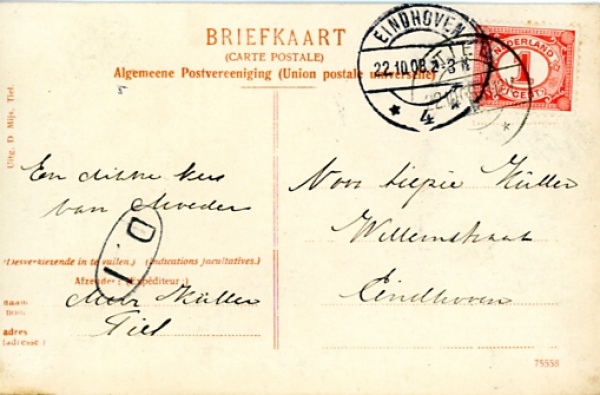 BRIEFKAART
(CARTE POSTALE)
Algemeene Postvereeniging (Union postale universelle)
EINDHOVEN
22.10.08. 2-3 N
4
TIEL
NEDERLAND
1
CENT
Uitg. D. Mijs, Tiel.
En dikke kus
van Moeder
I.O
(Desverkiezende in te vullen.) (Indications facultatives.)
Afzender: (Expéditeur:)
naam
Küller
adres
Tiel
(adresse)
Voor Liepie Küller
Willemstraat
Eindhoven
75558